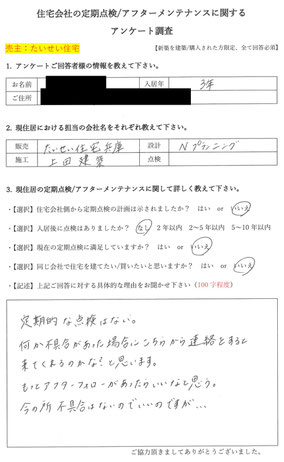 住宅会社の定期点検/アフターメンテナンスに関する
アンケート調査
売主：たいせい住宅
【新築を建築/購入された方限定、全て回答必須】
1. アンケートご回答者様の情報を教えて下さい。
お名前 入居年 3年
ご住所
2. 現住居における担当の会社名をそれぞれ教えて下さい。
販売 たいせい住宅兵庫 設計 Nプランニング
施工 上田建築 点検
3. 現住居の定期点検/アフターメンテナンスに関して詳しく教えて下さい。
・【選択】住宅会社側から定期点検の計画は示されましたか？ はい or いいえ
・【選択】入居後に点検はありましたか？ なし 2年以内 2~5年以内 5~10年以内
・【選択】現在の定期点検に満足していますか？ はい or いいえ
・【選択】同じ会社で住宅を建てたい/買いたいと思いますか？ はい or いいえ
・【記述】上記ご回答に対する具体的な理由をお聞かせ下さい（100字程度）
定期的な点検はない。
何か不具合があった場合にこちらから連絡をすると
来てくれるのかな？と思います。
もっとアフターフォローがあったらいいなと思う。
今の所不具合はないのでいいのですが…
ご協力頂きましてありがとうございました。